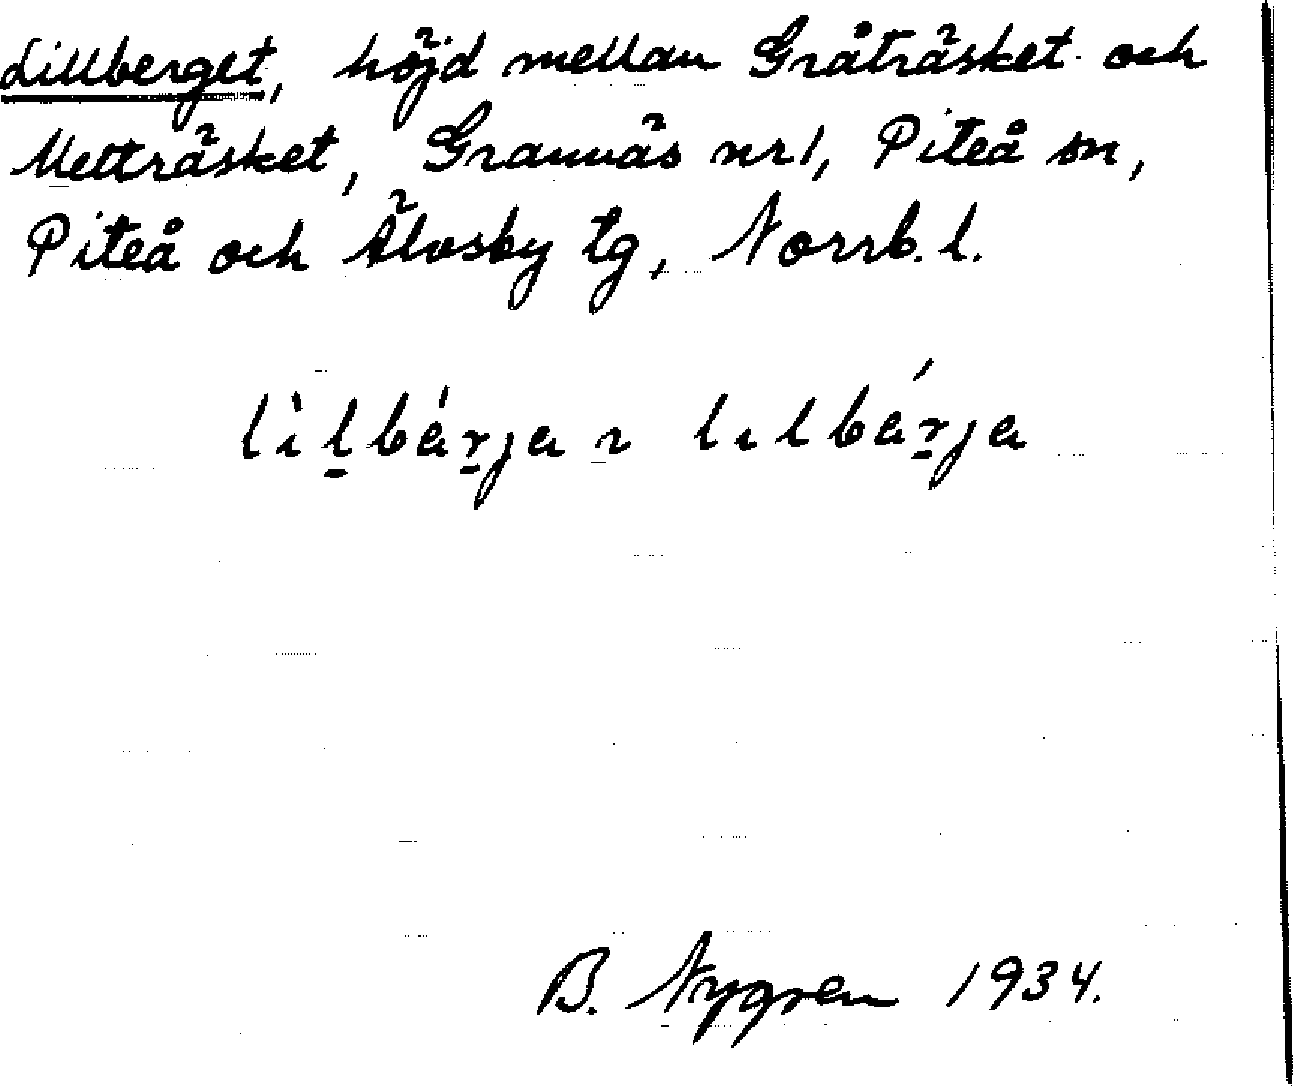 Lillberget, höjd mellan Gråträsket och
Metträsket, Grannäs nr 1, Piteå sn,
Piteå och Älvsby tg, Norrb. l.
lìlbárja ~ lilbárja
B. Nygren 1934.